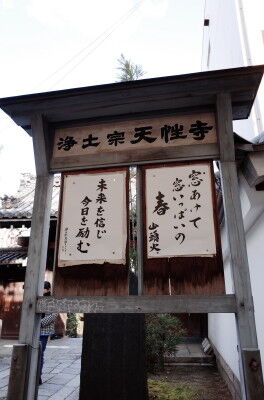 浄土宗天性寺
窓あけて
窓いっぱいの
春
山頭火
未来を信じ
今日を励む